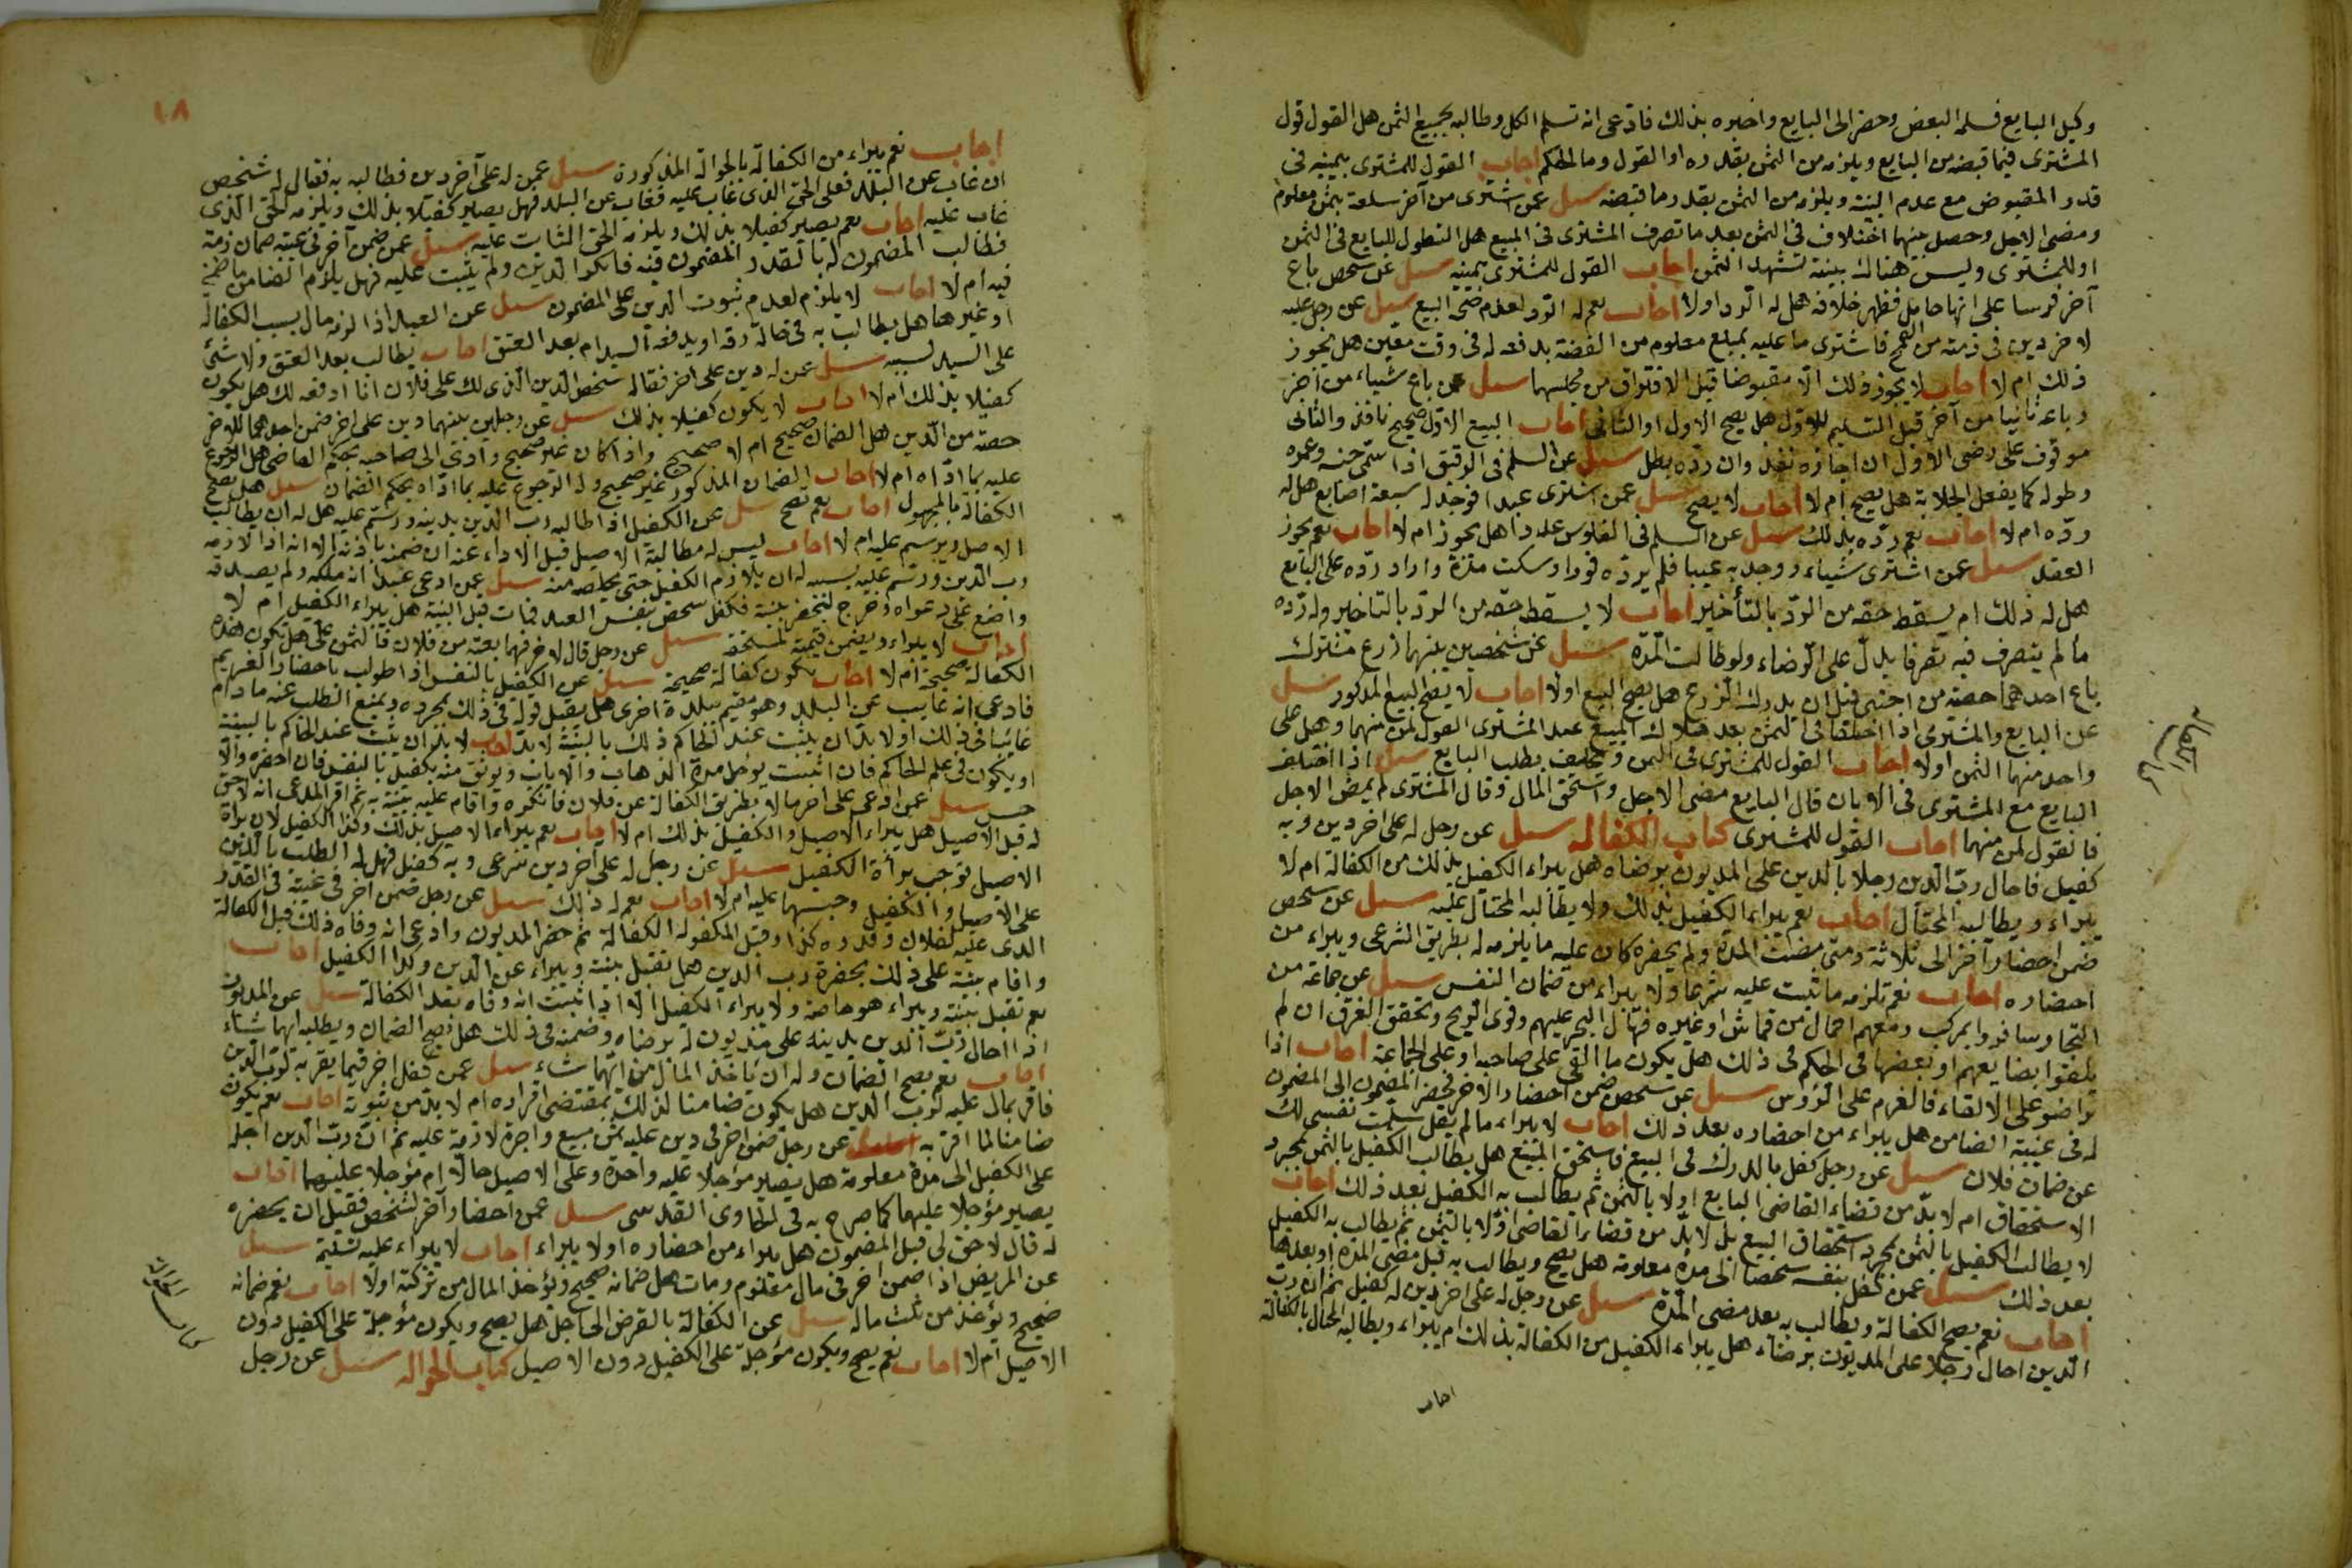 وكيل البايع فسلمه البعض وحضر الى البايع واخبره بذلك فادعى انه تسلم الكل وطالبه بجميع الثمن هل القول قول
المشترى فيما قبضه من البايع ويلزمه من الثمن بقدره او القول وما الحكم اجاب القول للمشترى بيمينه فى
قدر المقبوض مع عدم البينة ويلزمه من الثمن بقدر ما قبضه سيل عمن اشترى من آخر سلعة بثمن معلوم
ومضى الاجل وحصل منهما اختلاف فى الثمن بعد ما تصرف المشترى فى المبيع هل القول للبايع فى الثمن
او للمشترى وليس هناك بينة تشهد الثمن اجاب القول للمشترى بيمينه سيل عن شخص باع
آخر فرسا على انها حامل فظهر خلافه هل له الرد اولا اجاب نعم له الرد لعدم صحة البيع سيل عن رجل عليه
لاخر دين فى ذمته من القمح فاشترى ما عليه بمبلغ معلوم من الفضة يدفعه له فى وقت معين هل يجوز
ذلك ام لا اجاب لا يجوز ذلك الا مقبوضا قبل الافتراق من مجلسهما سيل عمن باع شياء من آخر
وباعه ثانيا من آخر قبل التسليم للاول هل يصح الاول او الثانى اجاب البيع الاول صحيح نافذ والثانى
موقوف على رضى الاول ان اجازه نفذ وان رده بطل سيل عن السلم فى الرقيق اذا سمى جنسه وعمره
وطوله كما يفعل الجلابة هل يصح ام لا اجاب لا يصح سيل عمن اشترى عبدا فوجد له سبعة اصابع هل له
رده ام لا اجاب نعم رده بذلك سيل عن السلم فى الفلوس عددا هل يجوز ام لا اجاب نعم يجوز
العقد سيل عمن اشترى شياء ووجد به عيبا فلم يرده فورا وسكت مدة واراد رده على البايع
هل له ذلك ام يسقط حقه من الرد بالتأخير اجاب لا يسقط حقه من الرد بالتاخير وله رده
ما لم يتصرف فيه تصرفا يدل على الرضاء ولو طالت المدة سيل عن شخصين بينهما زرع مشترك
باع احدهما حصته من اجنبى قبل ان يدرك الزرع هل يصح البيع اولا اجاب لا يصح البيع المذكور سيل
عن البايع والمشترى اذا اختلفا فى الثمن بعد هلاك المبيع عند المشترى القول لمن منهما وهل على
واحد منهما الثمن اولا اجاب القول للمشترى فى الثمن ويحلف بطلب البايع سيل اذا اختلف
البايع مع المشترى فى الابان قال البايع مضى الاجل واستحق المال وقال المشترى لم يمض الاجل
فالقول لمن منهما اجاب القول للمشترى كتاب الكفاله سيل عن رجل له على اخر دين وبه
كفيل فاحال رب الدين رجلا بالدين على المديون برضاه هل يبراء الكفيل بذلك من الكفالة ام لا
يبراء ويطالبه المحتال اجاب نعم يبراء الكفيل بذلك ولا يطالبه المحتال عليه سيل عن شخص
ضمن احضار آخر الى ثلاثة ومتى مضت المدة ولم يحضره كان عليه ما يلزمه له بطريق الشرعى ويبراء من
احضاره اجاب نعم تلزمه ما ثبت عليه شرعا ولا يبراء من ضمان النفس سيل عن جماعة من
التجار سافروا بمركب ومعهم احمال من قماش او غيره فهال البحر عليهم وقوى الريح وتحقق الغرق ان لم
يلقوا بضايعهم او بعضها فى الحكم فى ذلك هل يكون ما القى على صاحبه او على الجماعة اجاب اذا
تراضوا على الالقاء فالغرم على الرؤس سيل عن شخص ضمن احضار الاخر فحضر المضمون الى المضمون
له فى غيبة الضامن هل يبراء من احضاره بعد ذلك اجاب لا يبراء ما لم يقل سلمت نفسى لك
عن ضمان فلان سيل عن رجل كفل بالدرك فى البيع فاستحق المبيع هل يطالب الكفيل بالثمن بمجرد
الاستحقاق ام لا بد من قضاء القاضى البايع اولا بالثمن ثم يطالب به الكفيل بعد ذلك اجاب
لا يطالب الكفيل بالثمن بمجرد استحقاق المبيع بل لا بد من قضاء القاضى اولا بالثمن ثم يطالب به الكفيل
بعد ذلك سيل عمن كفل بنفسه شخصا الى مدة معلومة هل يصح ويطالب به قبل مضى المدة او بعدها
اجاب نعم يصح الكفالة ويطالب به بعد مضى المدة سيل عن رجل له على اخر دين له كفيل ثم ان رب
الدين احال رجلا على المديون برضاء هل يبراء الكفيل من الكفالة بذلك ام يبراء ويطالبه المحال بالكفالة
اجاب
كتاب
الكفاله
١٨
اجاب نعم يبراء من الكفالة بالحوالة المذكورة سيل عمن له على آخر دين فطالبه به فقال له شخص
ان غاب عن البلد فعلى الحق الذى غاب عليه فغاب عن البلد فهل يصير كفيلا بذلك ويلزمه الحق الذى
غاب عليه اجاب نعم يصير كفيلا بذلك ويلزمه الحق الثابت عليه سيل عمن ضمن آخر فى غيبته ضمان ذمة
فطالب المضمون له بالقدر المضمون فيه فانكر الدين ولم يثبت عليه فهل يلزم الضامن ما ضمنه
فيه ام لا اجاب لا يلزم لعدم ثبوت الدين على المضمون سيل عن العبد اذا لزمه مال بسبب الكفالة
او غيرها هل يطالب به فى حالة رقه او يدفعه السيد ام بعد العتق اجاب يطالب بعد العتق ولا شئ
على السيد بسببه سيل عمن له دين على اخر فقال له شخص الدين الذى لك على فلان انا ادفعه لك هل يكون
كفيلا بذلك ام لا اجاب لا يكون كفيلا بذلك سيل عن رجلين بينهما دين على اخر ضمن احدهما للاخر
حصته من الدين هل الضمان صحيح ام لا صحيح واذا كان غير صحيح وادى الى صاحبه بحكم القاضى هل الرجوع
عليه بما اداه ام لا اجاب الضمان المذكور غير صحيح وله الرجوع عليه بما اداه بحكم الضمان سيل هل تصح
الكفالة بالمجهول اجاب نعم تصح سيل عن الكفيل اذا طالبه رب الدين بدينه ورسم عليه هل له ان يطالب
الاصل ويرسم عليه ام لا اجاب ليس له مطالبة الاصيل قبل الاداء عنه ان ضمنه باذنه الا انه اذا لازمه
رب الدين ورسم عليه بسببه له ان يلازم الكفيل حتى يخلصه منه سيل عمن ادعى عبدا انه ملكه ولم يصدقه
واضع على دعواه وخرج ليحضر بينة فكفل شخص بنفس العبد فمات قبل البينة هل يبراء الكفيل ام لا
اجاب لا يبراء ويضمن قيمته لمستحقه سيل عن رجل قال لاخر فهما بعته من فلان فالثمن على هل تكون هذه
الكفالة صحيحة ام لا اجاب يكون كفالة صحيحة سيل عن الكفيل بالنفس اذا طولب باحضار الغريم
فادعى انه غايب عن البلد وهو مقيم ببلدة اخرى هل يقبل قوله فى ذلك بمجرده ويمنع الطلب عنه ما دام
غائبا فى ذلك اولا بد ان يثبت عند الحاكم ذلك بالبينة لا بد اجاب لا بد ان يثبت عند الحاكم بالبينة
او يكون فى علم الحاكم فان اثبتت يؤجل مدة الذهاب والاياب ويوثق منه بكفيل بالنفس فان احضره والا
حبس سيل عمن ادعى على اخر مالا بطريق الكفالة عن فلان فانكره واقام عليه بينة به ثم اقر المدعى انه لا حق
له قبل الاصيل هل يبراء الاصيل والكفيل بذلك ام لا اجاب نعم يبراء الاصيل بذلك وكذا الكفيل لان براة
الاصيل توجب براءة الكفيل سيل عن رجل له على آخر دين شرعى وبه كفيل فهل له الطلب بالدين
على الاصيل والكفيل وحبسهما عليه ام لا اجاب نعم له ذلك سيل عن رجل ضمن آخر فى غيبته فى القدر
الذى عليه لفلان وقدره كذا وقبل المكفول له الكفالة ثم حضر المديون وادعى انه وفاه ذلك قبل الكفالة
واقام بينة على ذلك بحضرة رب الدين هل تقبل بينته ويبراء عن الدين وكذا الكفيل اجاب
نعم تقبل بينته ويبراء هو خاصة ولا يبراء الكفيل الا اذا اثبت انه وفاه بعد الكفالة سيل عن المديون
اذا احال رب الدين بدينه على مديون له برضاه وضمنه فى ذلك هل يصح الضمان ويطلبه ايهما شاء
اجاب نعم يصح الضمان وله ان ياخذ المال من ايهما شاء سيل عمن كفل اخر فيما يقر به لرب الدين
فاقر بمال عليه لرب الدين هل يكون ضامنا لذلك بمقتضى اقراره ام لا بد من ثبوته اجاب نعم يكون
ضامنا لما اقر به سيل عن رجل ضمن اخر فى دين عليه ثمن مبيع واجرة لازمة عليه ثم ان رب الدين اجله
على الكفيل الى مدة معلومة هل يصير مؤجلا عليه واحدة وعلى الاصيل حالا ام مؤجلا عليهما اجاب
يصير مؤجلا عليهما كما صرح به فى الحاوى القدسى سيل عمن احضار آخر لشخص فقبل ان يحضره
له قال لا حق لى قبل المضمون هل يبراء من احضاره اولا يبراء اجاب لا يبراء عليه تسليمه سيل
عن المريض اذا ضمن اخر فى مال معلوم ومات هل ضمانه صحيح ويؤخذ المال من تركته اولا اجاب نعم ضمانه
صحيح ويؤخذ من ثلث ماله سيل عن الكفالة بالقرض الى اجل هل يصح ويكون مؤجلة على الكفيل دون
الاصيل ام لا اجاب نعم يصح ويكون مؤجلة على الكفيل دون الاصيل كتاب الحواله سيل عن رجل
كتاب الحواله